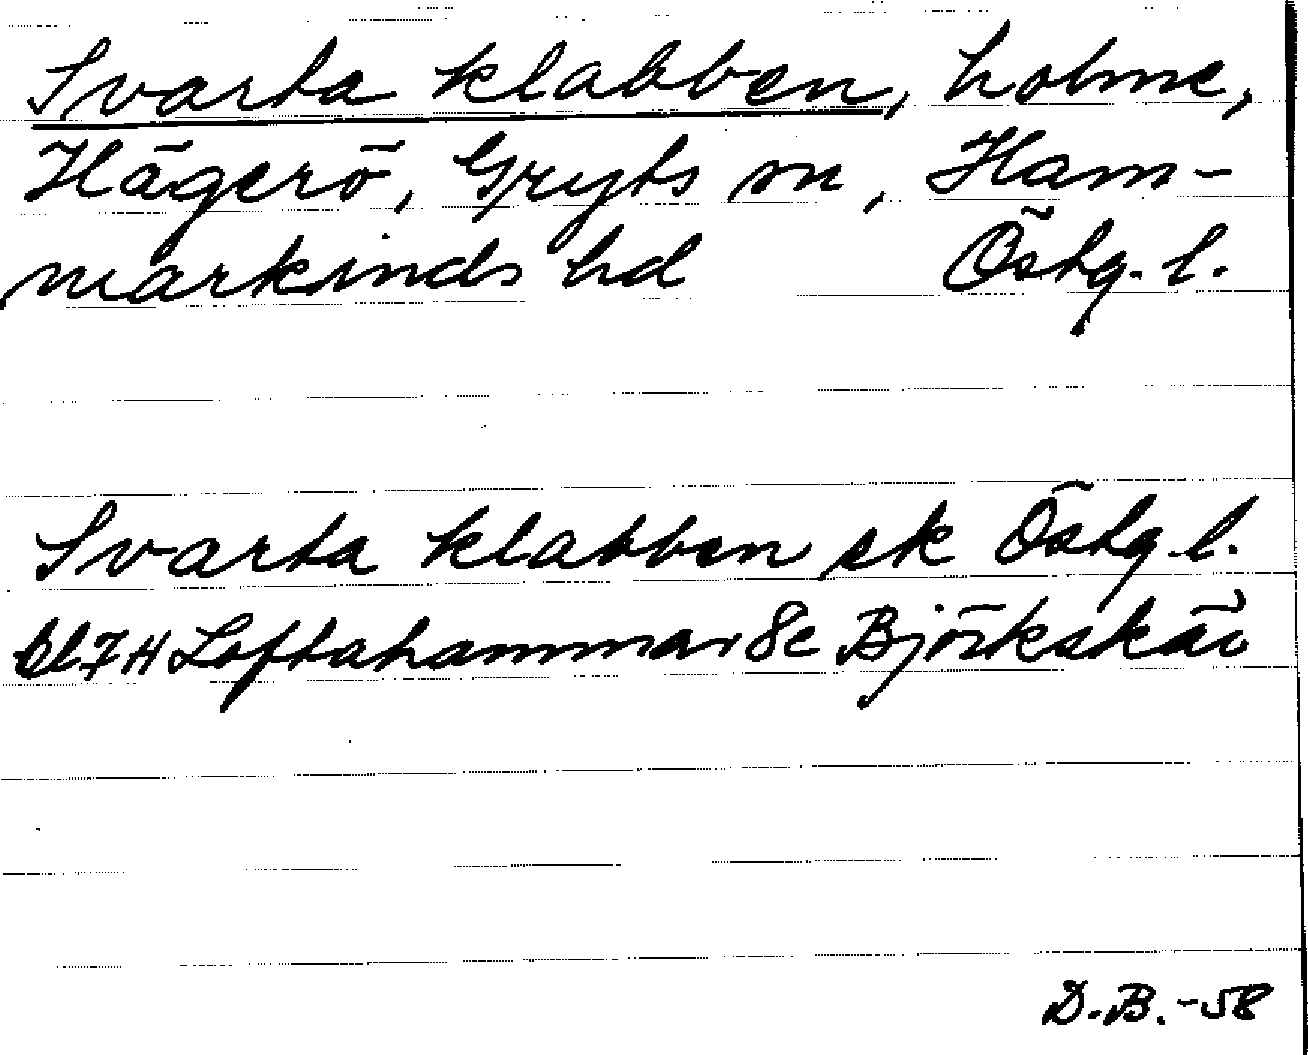 Svarta klabben, holme,
Hägerö, Gryts sn, Ham-
markinds hd Östg. l.
Svarta klabben ek Östg. l.
bl. 7 H Loftahammar 8e Björkskär
D.B. -58